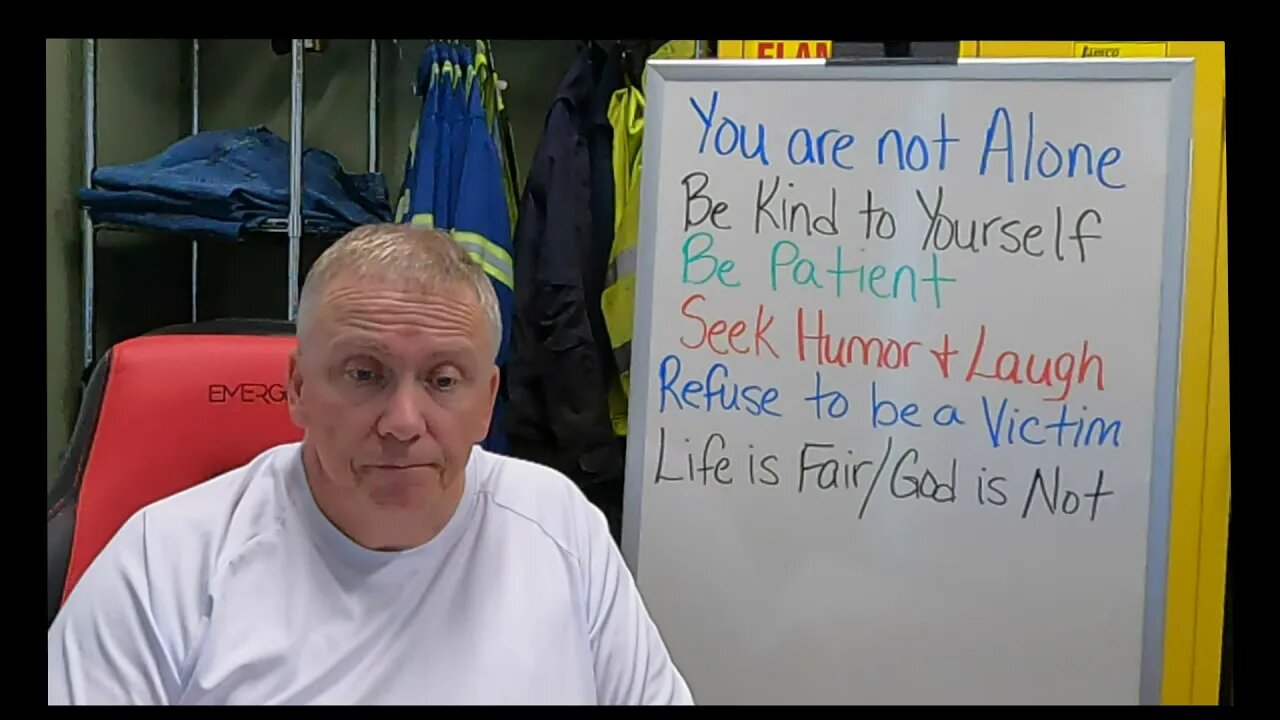 FLAM
Jamco
You are not Alone
Be Kind to Yourself
Be Patient
Seek Humor + Laugh
Refuse to be a Victim
Life is Fair/God is Not
EMERG